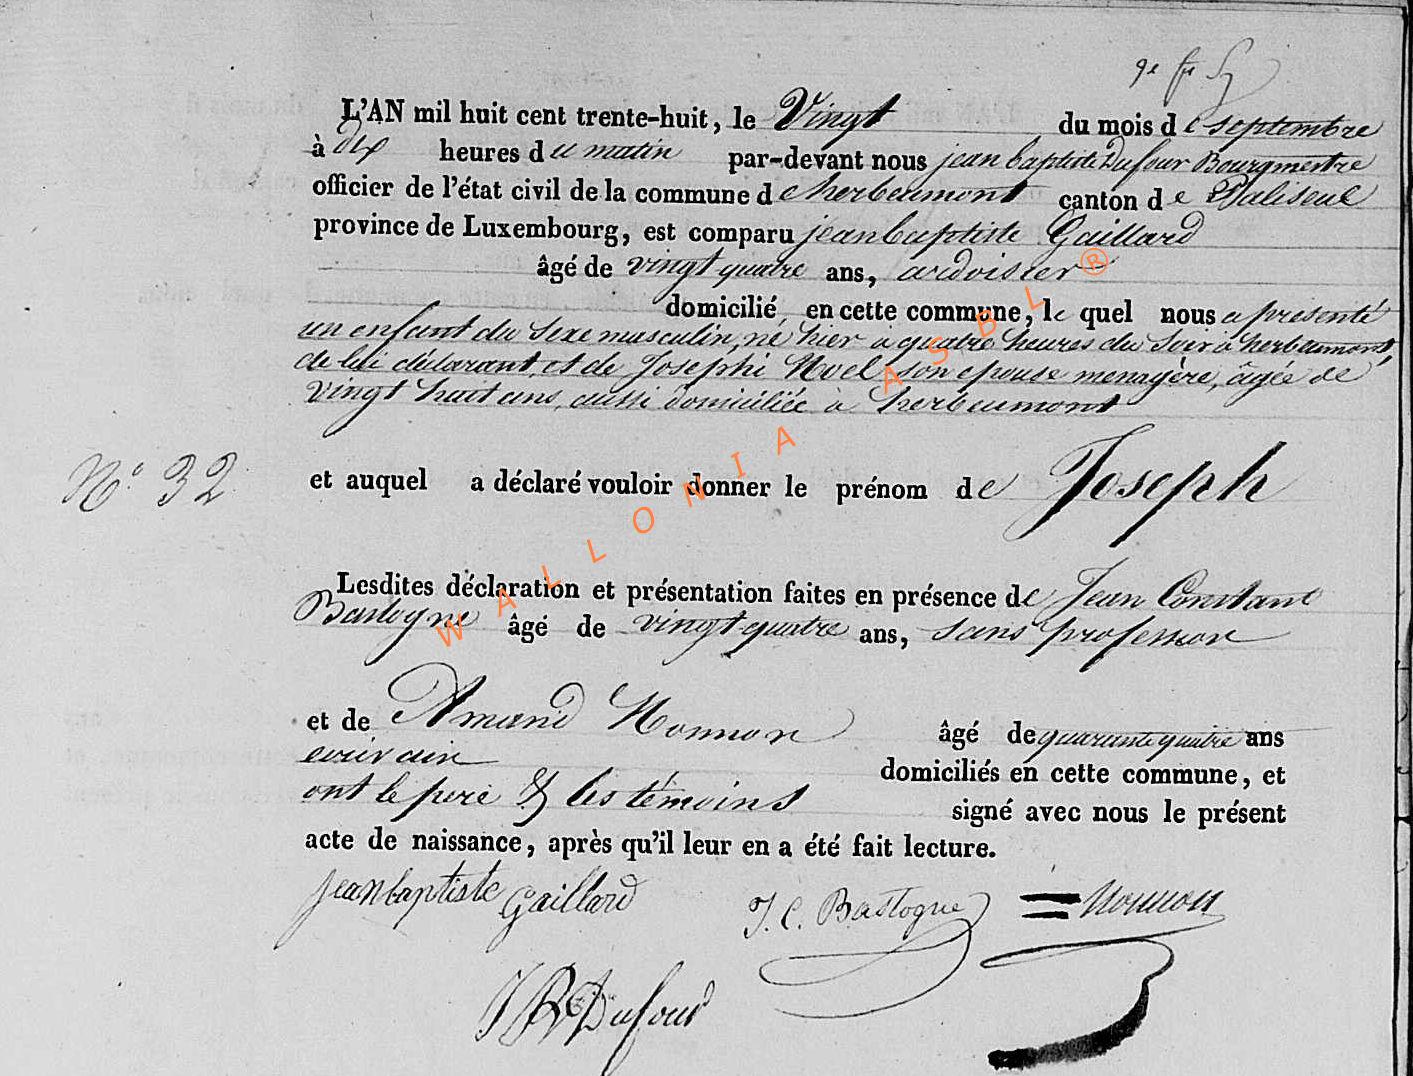 L'AN mil huit cent trente-huit, le Vingt du mois de septembre
à dix heures du matin par-devant nous jean baptiste Dufour Bourgmestre
officier de l'état civil de la commune de herbeumont canton de Paliseul
province de Luxembourg, est comparu jean baptiste Gaillard
âgé de vingt quatre ans, ardoisier
domicilié en cette commune, le quel nous a présenté
un enfant du sexe masculin, né hier à quatre heures du soir à herbeumont,
de lui déclarant, et de Josephi Noel son epouse menagère, âgée de
vingt huit ans, aussi domiciliée à herbeumont
N° 32
et auquel a déclaré vouloir donner le prénom de Joseph
Lesdites déclaration et présentation faites en présence de Jean Constant
Bastogne âgé de vingt-quatre ans, sans profession
et de Amand Monnon âgé de quarante quatre ans
ecrivain
domiciliés en cette commune, et
ont le pere & les témoins signé avec nous le présent
acte de naissance, après qu'il leur en a été fait lecture.
Jean baptiste Gaillard J. C. Bastogne Monnon
JB Dufour
WALLONIA ASBL ®